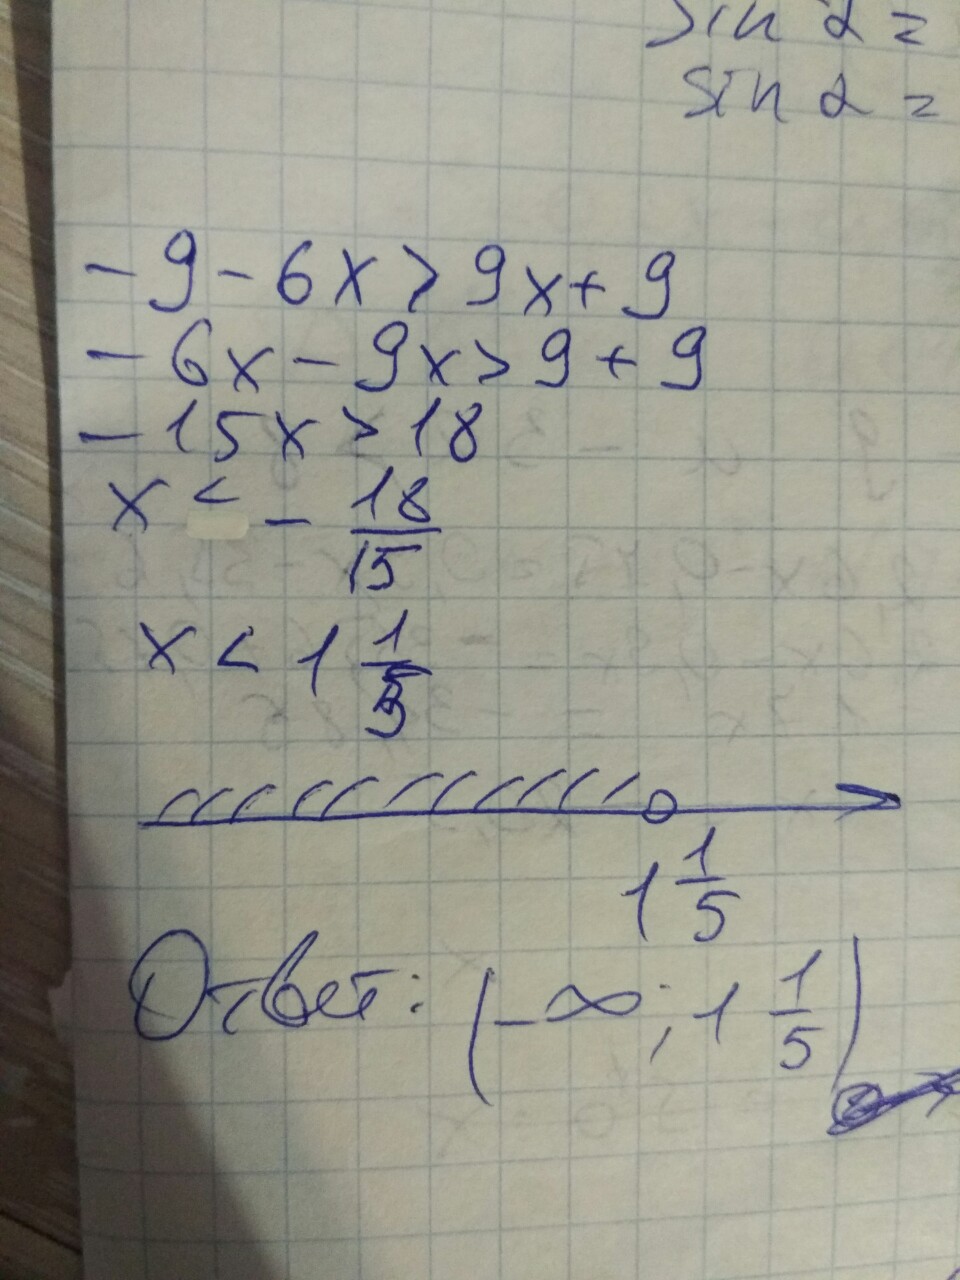 sin α =
sin α =
- 9 - 6x > 9x + 9
- 6x - 9x > 9 + 9
- 15x > 18
x < - 18/15
x < 1 1/5
1 1/5
Ответ: (-∞; 1 1/5)